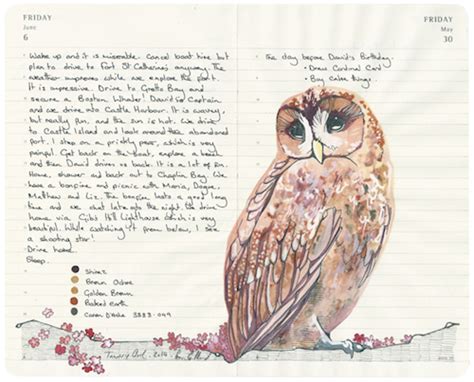 FRIDAY
June
6
Wake up and it is miserable. Cancel boat hire but
plan to drive to Fort St Catherine's anyway. The
weather improves while we explore the fort.
It is impressive. Drive to Grotto Bay and
secure a Boston Whaler! David is Captain
and we drive into Castle Harbour. It is wavy
but really fun, and the sun is hot. We drive
to Castle Island and look around the abandoned
fort. I step on a prickly pear, which is very
painful. Get back on the boat, explore a beach
and then David drives us back. It is a lot of fun.
Home, shower and back out to Chaplin Bay. We
have a bonfire and picnic with Maria, Dogue,
Matthew and Liz. The bonfire lasts a good long
time and we chat late into the night. We drive
home via Gibb's Hill Lighthouse which is very
beautiful. While watching it from below, I see
a shooting star!
Drive home.
Sleep.
Shiraz
Brown Ochre
Golden Brown
Baked Earth
Caran D'Ache 3888.049
Tawny Owl. 2014
FRIDAY
May
30
The day before David's Birthday.
- Draw Cardinal Card
- Buy Cake things